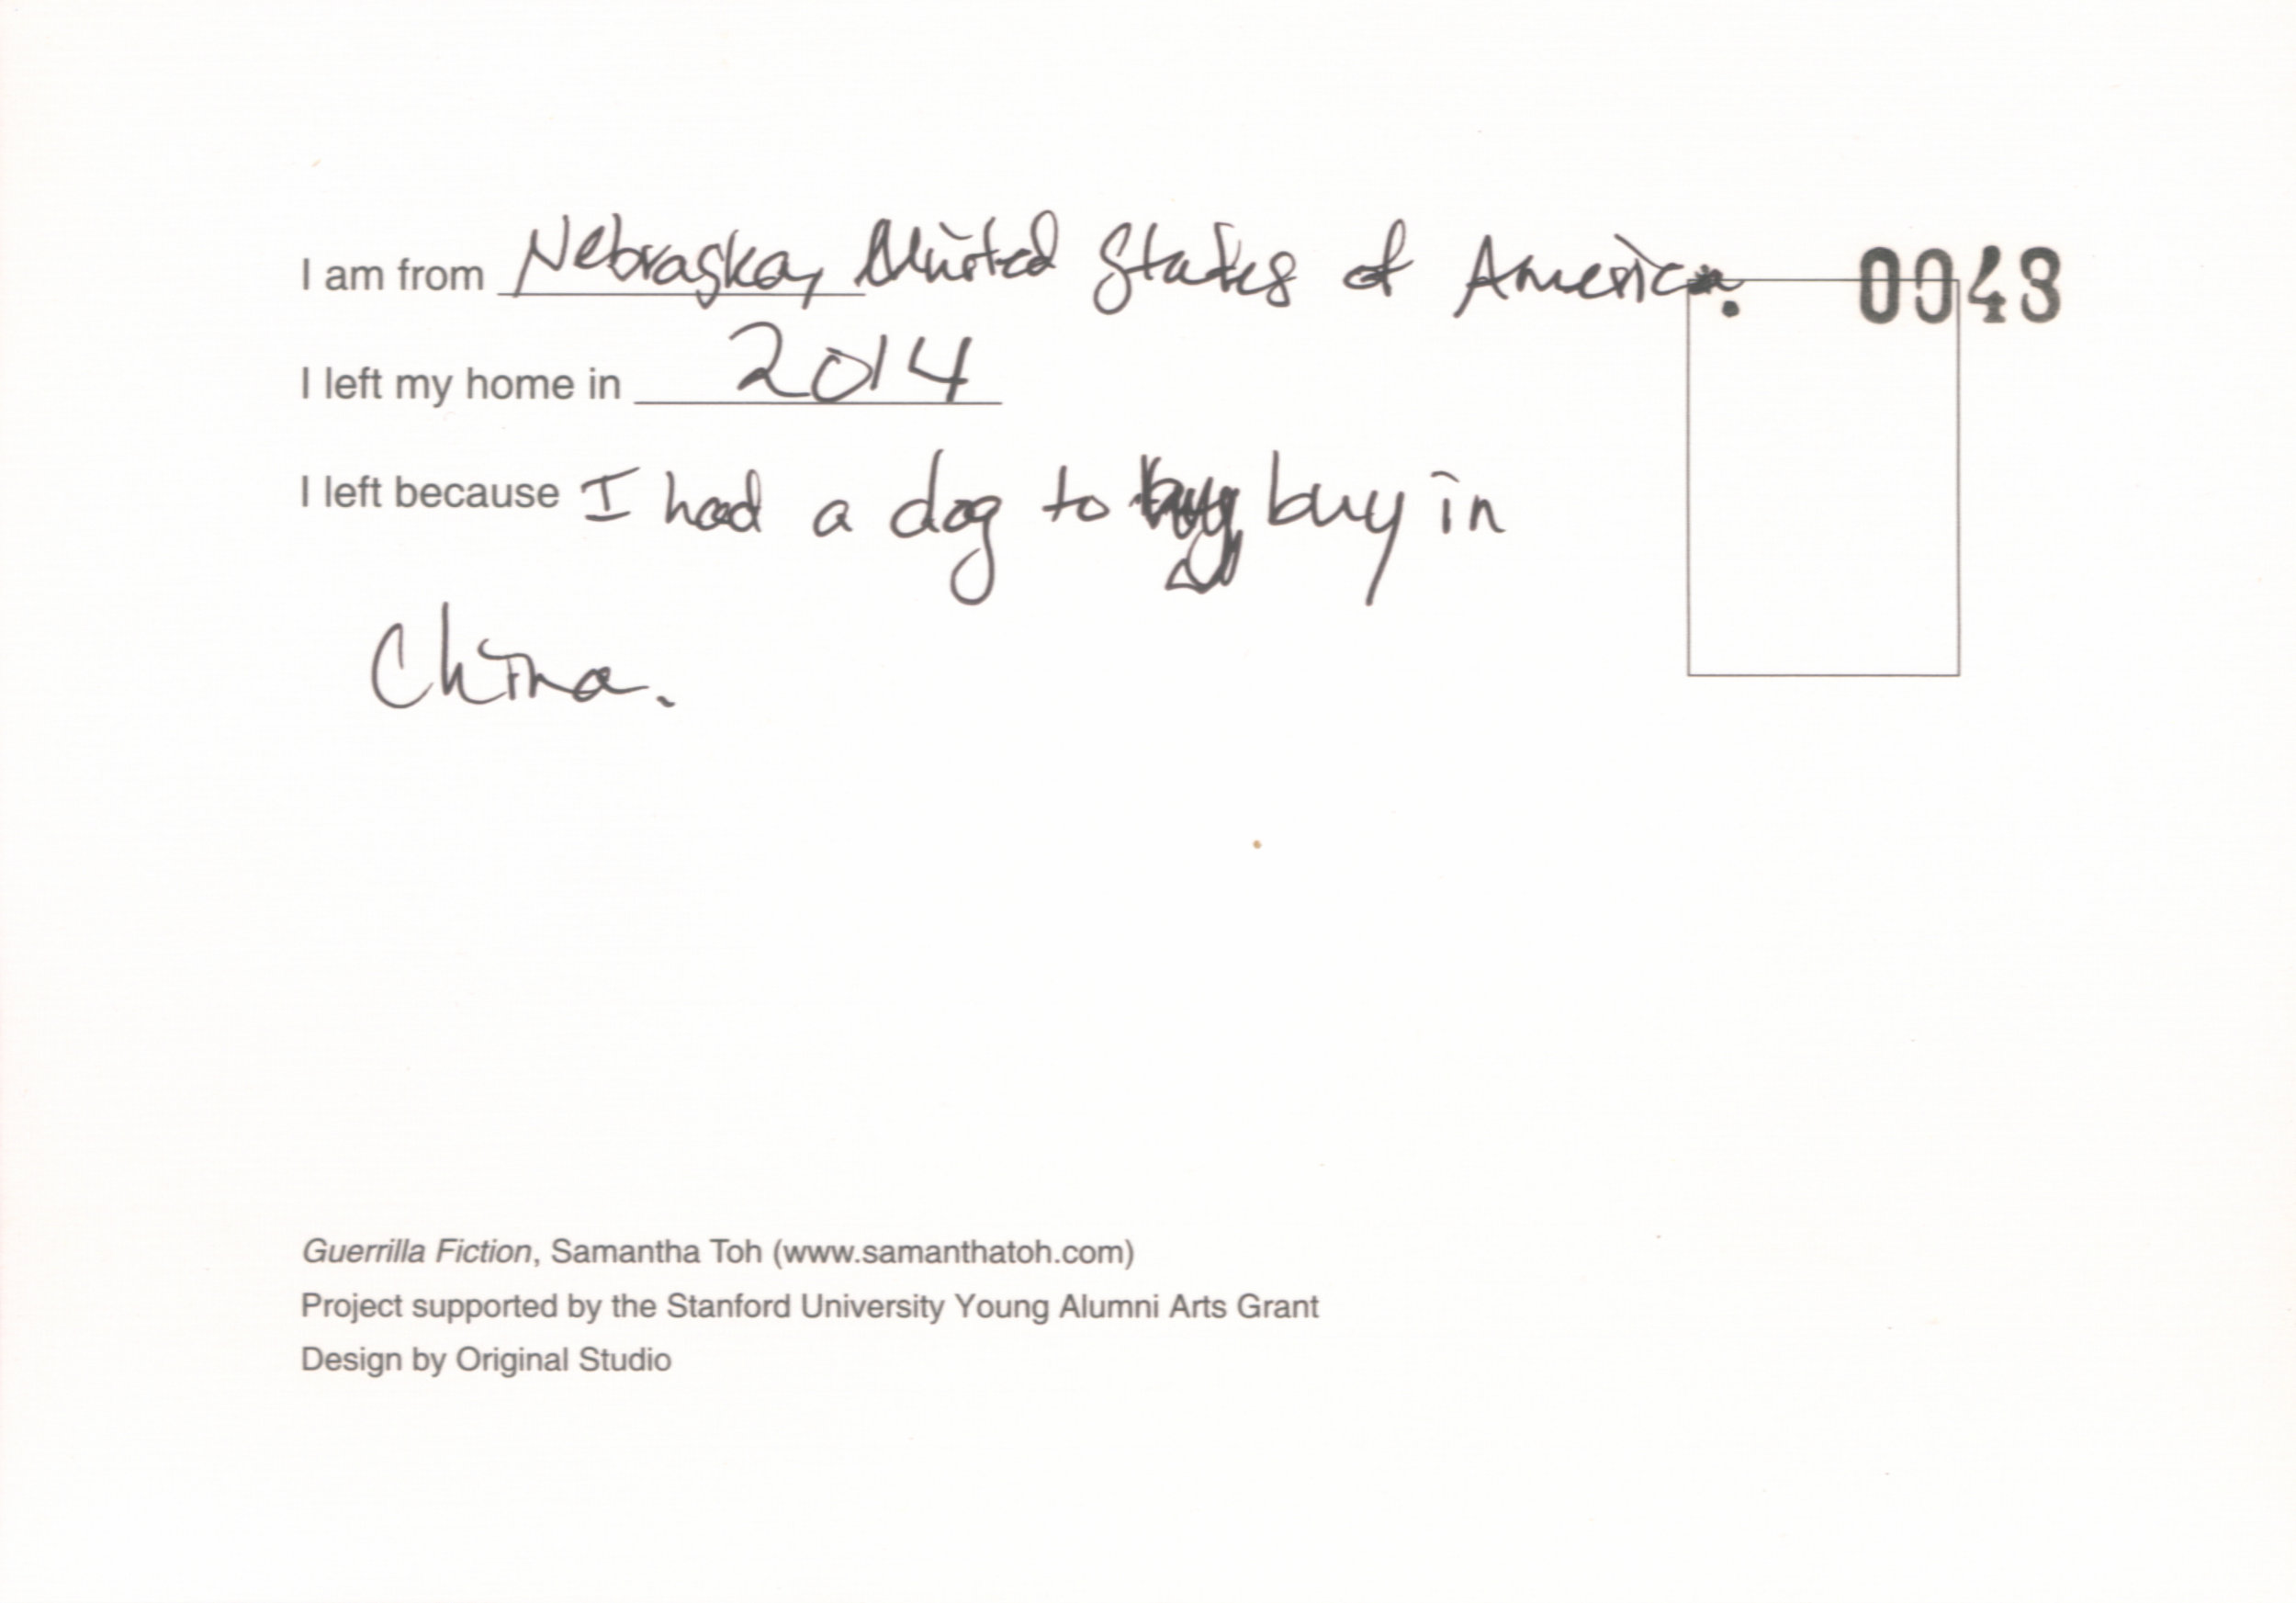 I am from Nebraska, United States of America. 0048
I left my home in 2014
I left because I had a dog to buy in
China.
Guerrilla Fiction, Samantha Toh (www.samanthatoh.com)
Project supported by the Stanford University Young Alumni Arts Grant
Design by Original Studio